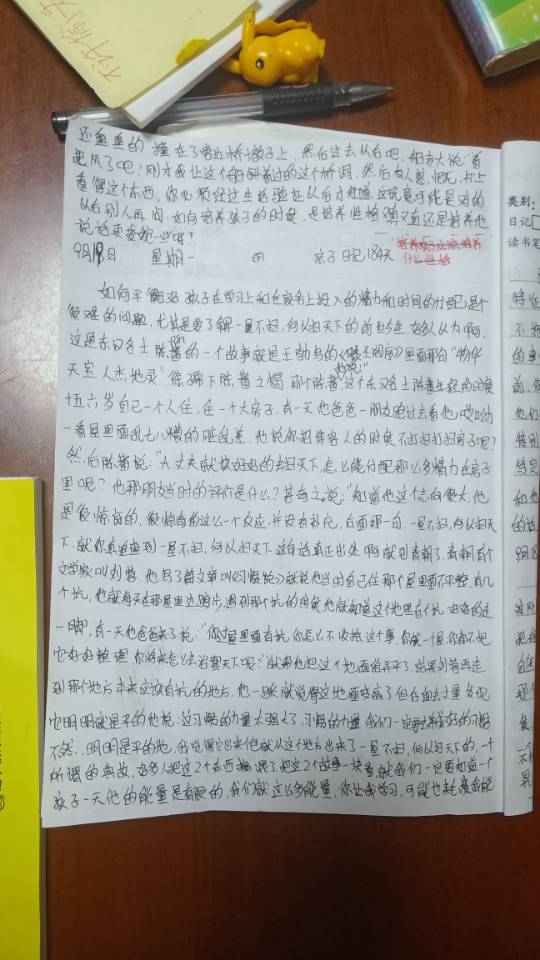 不许偷看
类别:
日记
读书笔
还重重的撞在了旁边桥墩子上,然后过去以后吧,船老大说:看
起风了吧!刚才我让这个
看得这个东西,你必须经过生活验证以后才知道,这玩意可能是对的
以后别人再问:如何培养孩子的时候,是培养性格强项还是培养他
说话更委婉一些呢?
培养孩子应该培养
什么性格
9月19日 星期一 雨 亲子日记184天
如何平衡好孩子在学习上和在家务上投入的精力和时间的分配是个
很难的问题,尤其是要了解一屋不扫,何以扫天下的前世今生,好多人认为啊,
这是东汉名士陈蕃的一个故事就是王勃写的《滕王阁序》里面那句“物华
天宝 人杰地灵”徐孺下陈蕃之榻 那个陈蕃他说:这个东汉名士陈蕃年轻的时候
十五六岁自己一个人住,住一个大房子,有一天他爸爸一朋友跑过去看他,哎哟
一看屋里面乱七八糟的脏乱差,他说你招待客人的时候不打扫打扫房子呢?
然后陈蕃说:“大丈夫就要好好的去扫天下,怎么能付配那么多精力在房子
里呢?他那朋友当时的评价是什么?甚奇之说:“知道他这个志向很大,他
是很惊讶的,很惊奇的这么一个反应,并没有补充,后面那一句,一屋不扫,何以扫天
下,就你真追查到一屋不扫,何以扫天下这句话真正出处啊就到清朝了,清朝有个
文学家叫刘蓉,他写了篇文章叫《习惯说》就说他当时自己住那个屋里面不平整,有几
个坑,他就每天在那屋里边踱步,遇到那个坑的时候他就知道这个地里有个坑
一脚,有一天他爸爸来了说:“你屋里面有坑,你怎么不收拾这个事,你就一个屋,你都不把
它好好整理,你将来怎么去治理天下呢?”就帮他把这个地面给弄平了,结果刘蓉再走
到那个地方本来应该有坑的地方,他一踩就觉得这地面变高了但后面去丈量发现
它明明就是平的他说:这习惯的力量太强大了,习惯的力量我们一定要培养好的习惯
不然,明明是平的地,我觉得它出来,他就从这个地方出来了一屋不扫,何以扫天下的,一个
所谓的典故,好多人把这2个东西搞混了,把这2个故事一块看,就我们一定要知道一个
孩子一天他的能量是有限的,我们就这么多能量,你让我学习,可能也耗费我能